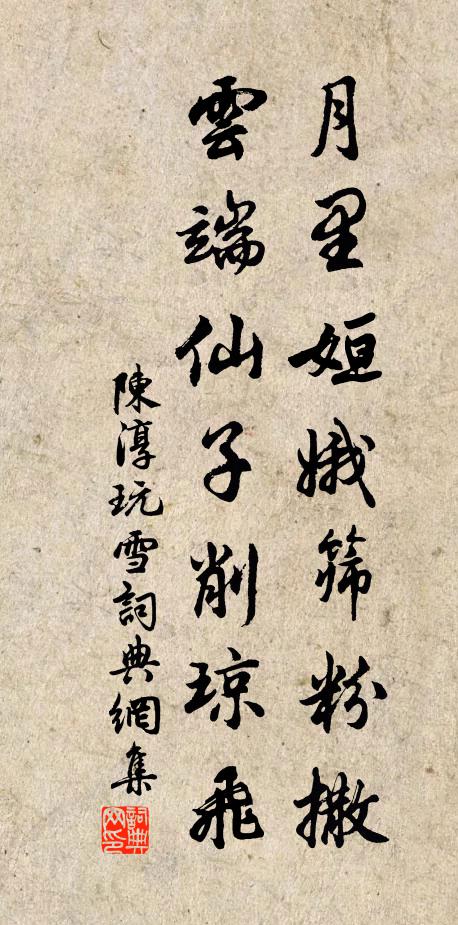 月里姮娥筛粉撒
雲端仙子削琼飛
陳淳玩雪詞典網集
詞典网印